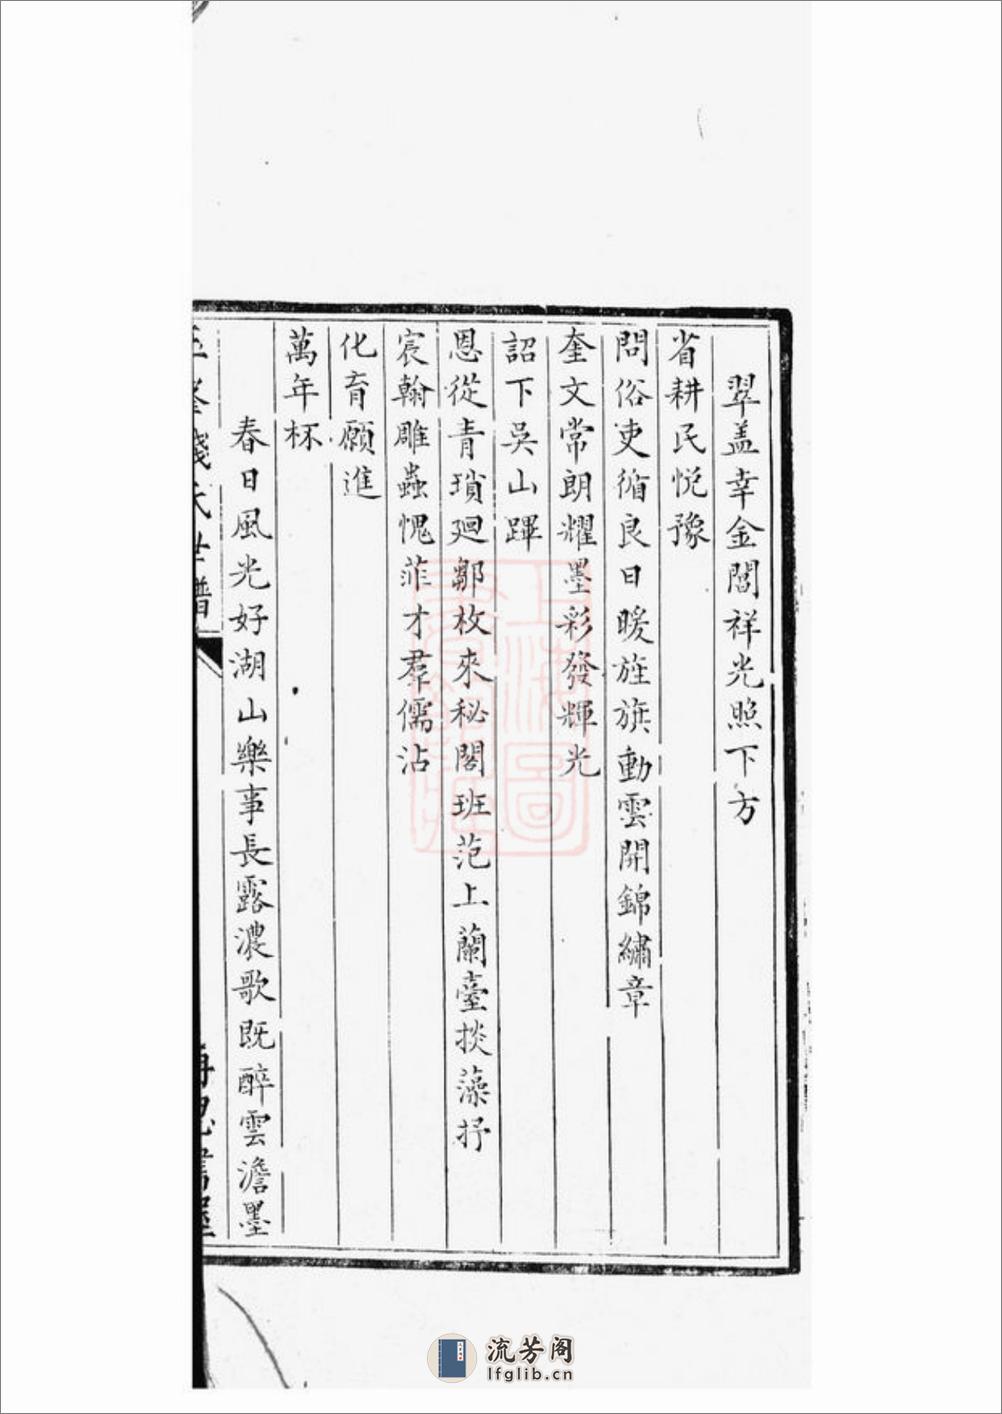 翠盖幸金閶祥光照下方
省耕民悦豫
問俗吏循良日暖旌旗動雲開錦繡章
奎文常朗耀墨彩發輝光
詔下吳山蹕
恩從青瑣廻鄒枚來秘閣班范上蘭臺掞藻抒
宸翰雕蟲愧菲才羣儒沾
化育願進
萬年杯
春日風光好湖山樂事長露濃歌既醉雲澹墨
錢氏世譜
上海圖
流芳阁
lfglib.cn